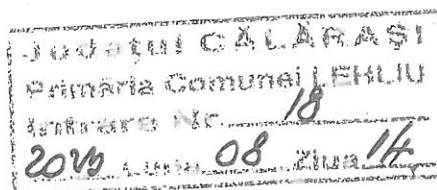 Județul CĂLĂRAȘI
Primăria Comunei LEHLIU
Intrare Nr. 18
Luna 08 Ziua 14